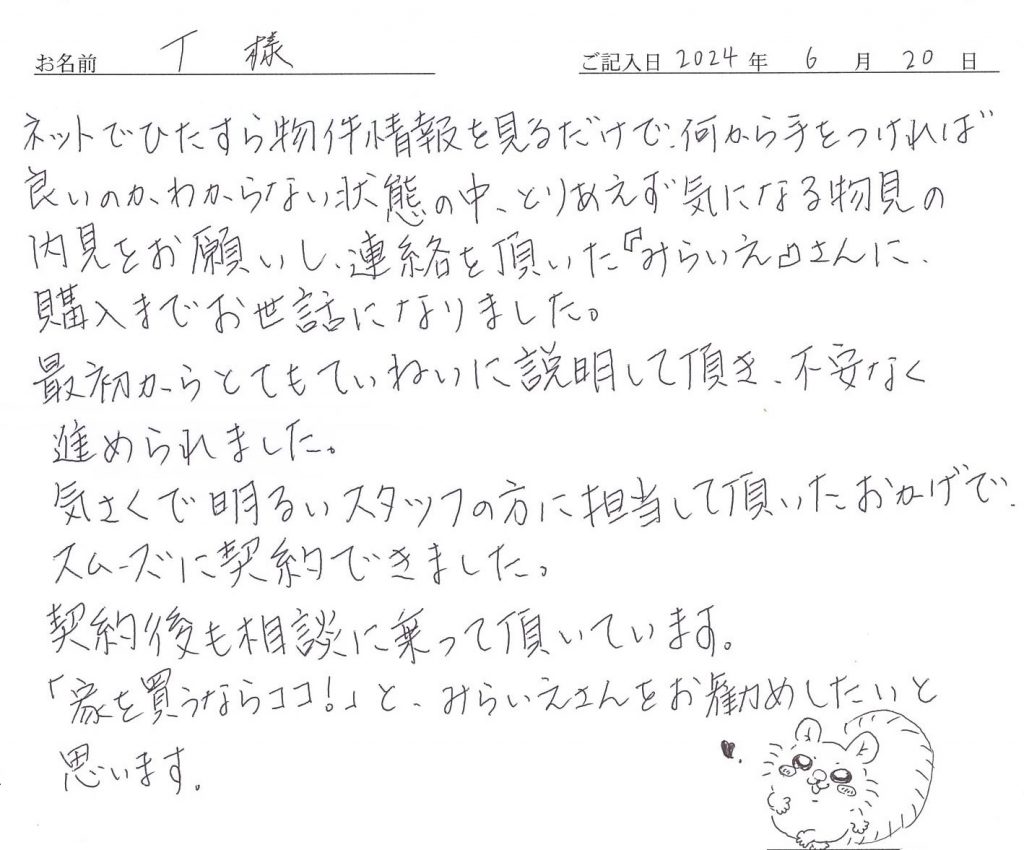 お名前 T 様 ご記入日 2024 年 6 月 20 日
ネットでひたすら物件情報を見るだけで、何から手をつければ
良いのかわからない状態の中、とりあえず気になる物見の
内見をお願いし、連絡を頂いた『みらいえ』さんに、
購入までお世話になりました。
最初からとてもていねいに説明して頂き、不安なく
進められました。
気さくで明るいスタッフの方に担当して頂いたおかげで、
スムーズに契約できました。
契約後も相談に乗って頂いています。
「家を買うならココ!」と、みらいえさんをお勧めしたいと
思います。